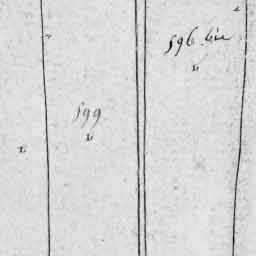 596 bis
599